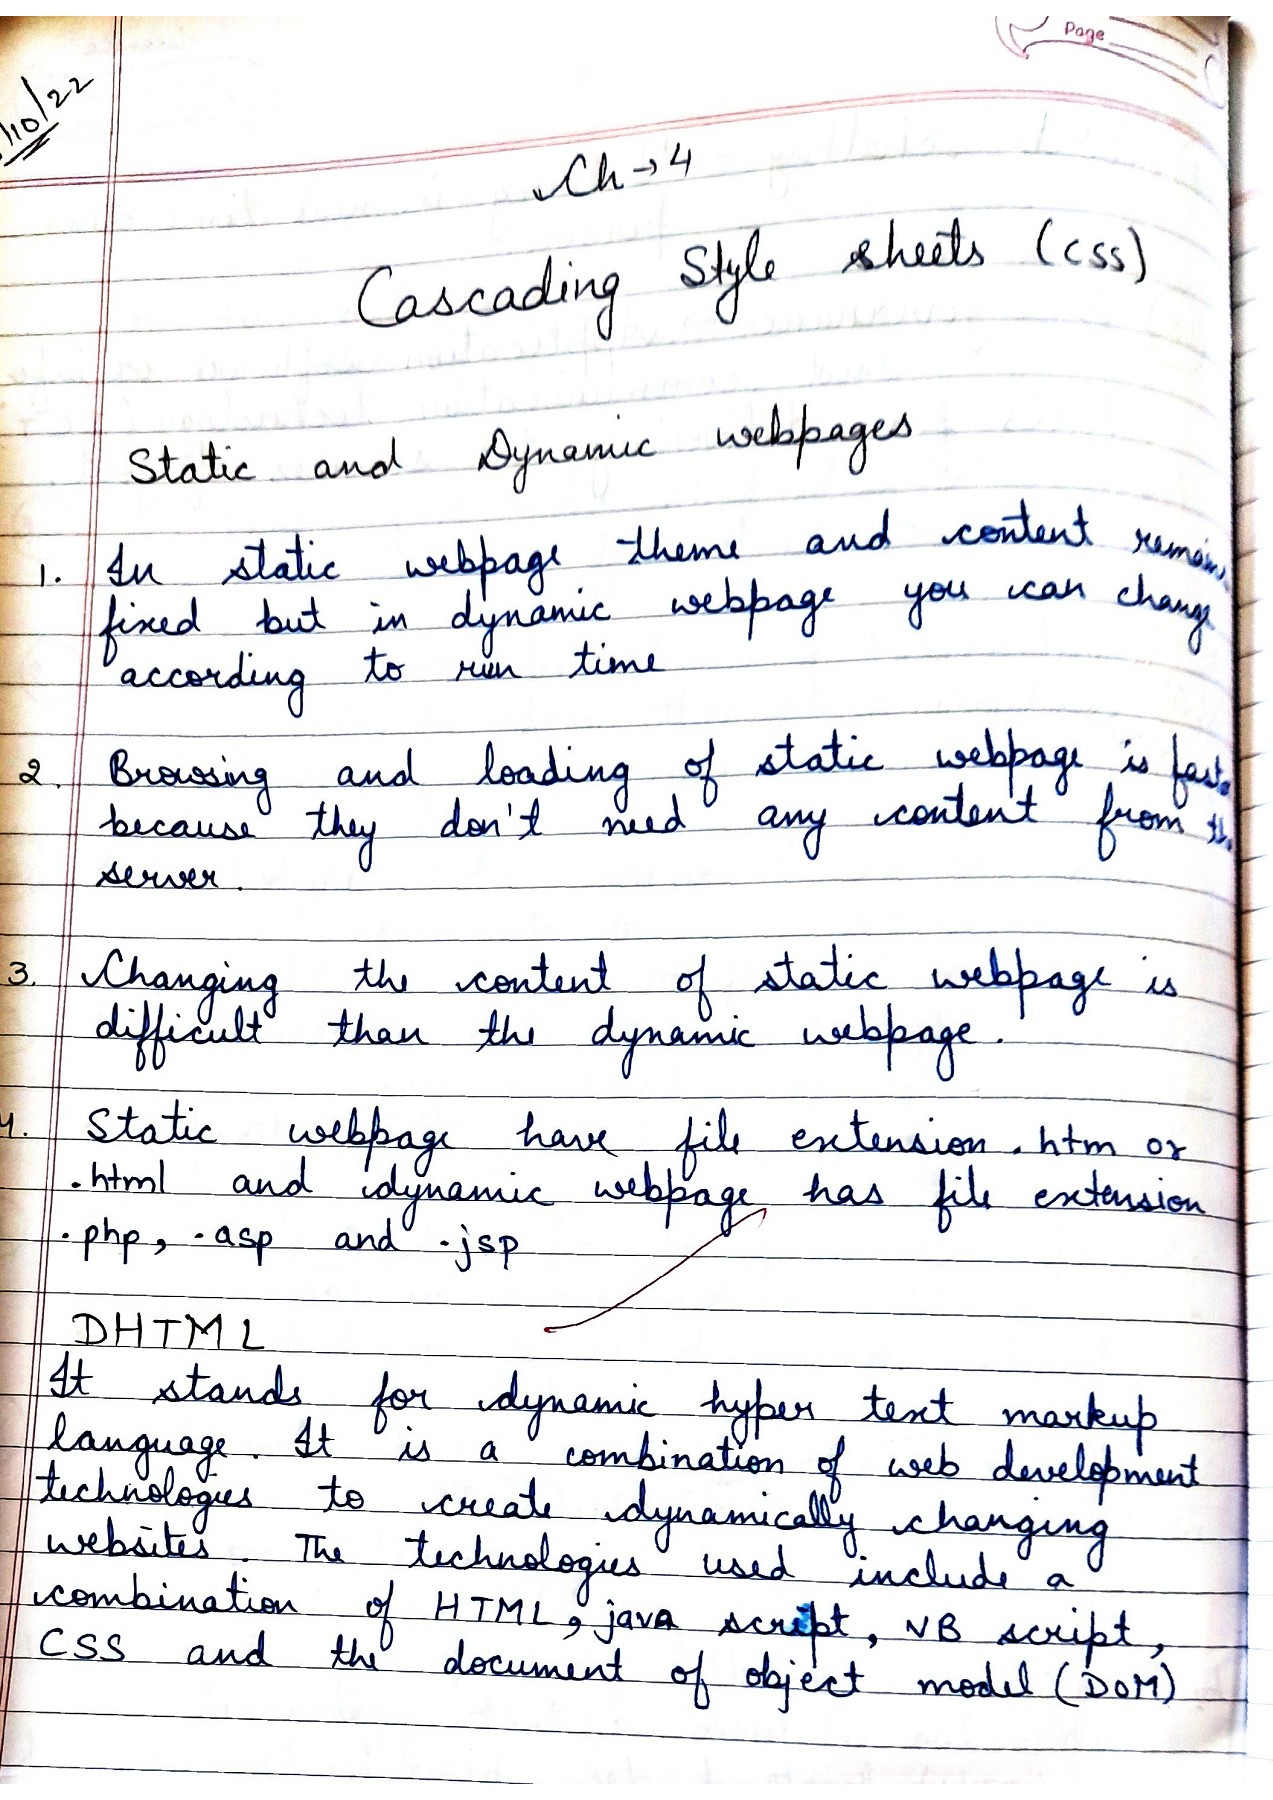 Page
/10/22
Ch → 4
Cascading Style sheets (CSS)
Static and Dynamic webpages
1. In static webpage theme and content remain
fixed but in dynamic webpage you can change
according to run time
2. Browsing and loading of static webpage is fast
because they don't need any content from
server.
3. Changing the content of static webpage is
difficult than the dynamic webpage.
4. Static webpage have file extension .htm or
.html and dynamic webpage has file extension
.php, .asp and .jsp
DHTML
It stands for dynamic hyper text markup
language. It is a combination of web development
technologies to create dynamically changing
websites. The technologies used include a
combination of HTML, java script, VB script,
CSS and the document of object model (DOM)